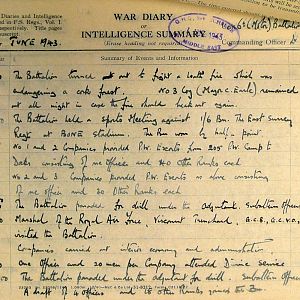 Diaries and Intelligence
in F.S. Regs., Vol. I
respectively. Title pages
manuscript.
JUNE 1943.
WAR DIARY
or
INTELLIGENCE SUMMARY
(Erase heading not required)
MIDDLE EAST
Battalion
Commanding Officer
Summary of Events and Information
The Battalion turned out to fight a heath fire which was
endangering a cork forest. No 3 Coy remained
at all night in case the fire should break out again.
The Battalion held a Sports Meeting against 1/6 Bn. The East Surrey
Regt at BONE Stadium. The Bn won by half a point.
No 1 and 2 Companies provided P.W. Escorts from 205 P.W. Camp to
consisting of one officer and 40 Other Ranks each
No 2 and 3 Companies provided P.W. Escorts as above consisting
of one officer and 30 Other Ranks each
The Battalion paraded for drill under the adjutant, subaltern officers
Marshal of the Royal Air Force, Viscount Trenchard, G.C.B., G.C.V.O.,
visited the Battalion.
Companies carried out interior economy and administration
One Officer and 20 men per Company attended Divine Service
The Battalion paraded under the adjutant for drill. Subaltern officers
A draft of 4 officers and 18 Other Ranks joined